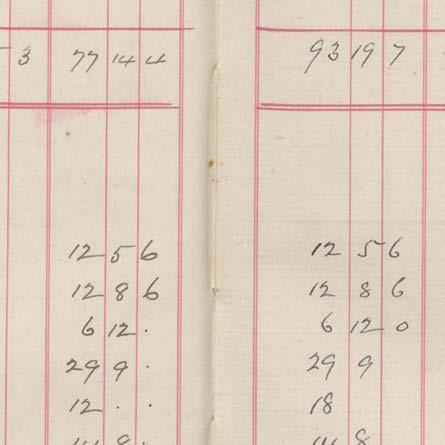 3 77 14 4 93 19 7
12 5 6 12 5 6
12 8 6 12 8 6
6 12 . 6 12 0
29 9 . 29 9
12 . . 18